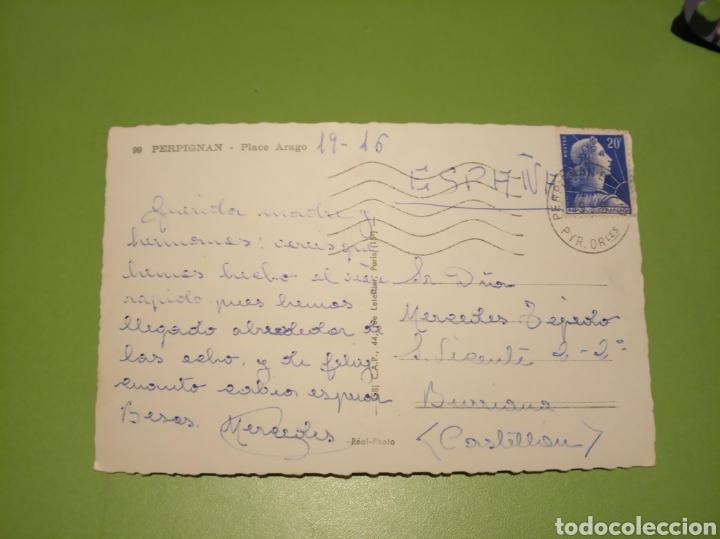 99 PERPIGNAN - Place Arago
19-16
ESPAÑA
POSTES 20F
PERPIGNAN
PYR. ORLES
Querida madre y
hermanas: vereis que
hemos hecho el viaje
rapido pues hemos
llegado alrededor de
las ocho. y de feliz
cuanto cabia esperar
Besos. Mercedes
C.A.P., 44, Rue Letellier, Paris (15e)
Réal-Photo
Sr. Dña
Mercedes Tejedo
S. Vicente 2-2º
Burriana
(Castellon)
todocoleccion